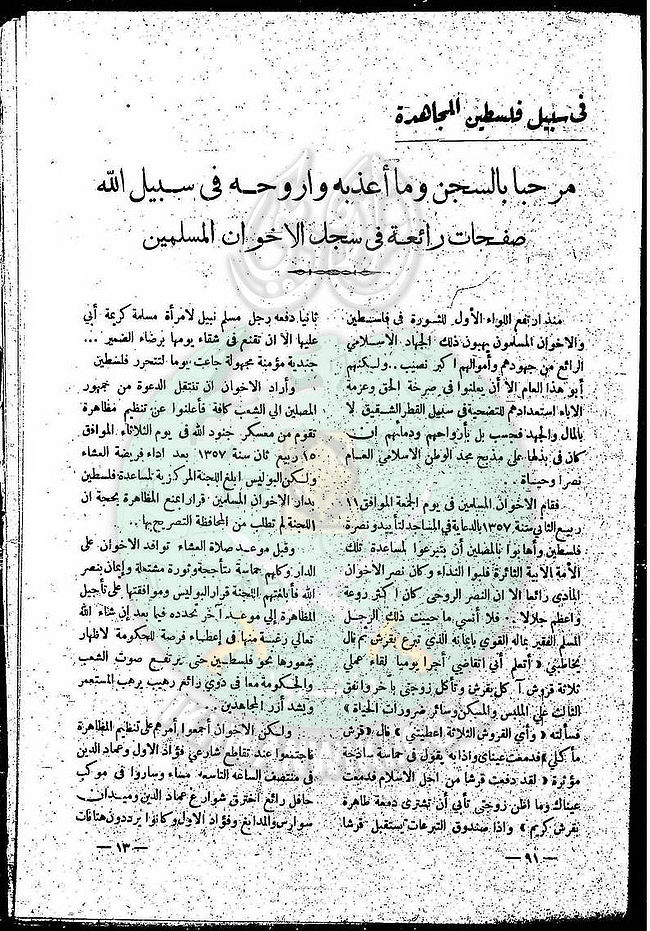 فى سبيل فلسطين المجاهدة
مرحبا بالسجن وما أعذبه واروحه فى سبيل الله
صفحات رائعة فى سجل الاخوان المسلمين
منذ ارتفع اللواء الأول للثورة فى فلسطين
والاخوان المسلمون يهبون ذلك الجهاد الاسلامى
الرائع من جهودهم وأموالهم اكبر نصيب .. ولكنهم
أبو هذا العام الا أن يعلنوا فى صرخة الحق وعزمة
الاباء استعدادهم للتضحية فى سبيل القطر الشقيق لا
بالمال والجهد فحسب بل بأرواحهم ودمائهم ان
كان فى بذلها على مذبح مجد الوطن الاسلامى العام
نصرا وحياة .
فقام الاخوان المسلمين فى يوم الجمعة الموافق ١١
ربيع الثانى سنة ١٣٥٧ بالدعاية فى المساجد لتأييد ونصرة
فلسطين وأهابوا بالمصلين أن يتبرعوا لمساعدة تلك
الأمة الأبية الثائرة فلبوا النداء وكان نصر الاخوان
المادى رائعا الا ان النصر الروحى كان اكثر روعة
واعظم جلالا .. فلا أنسى ما حييت ذلك الرجل
المسلم الفقير بماله القوى بايمانه الذى تبرع بقرش ثم قال
يخاطبنى « أتعلم أنى اتقاضى أجرا يوميا لقاء عملى
ثلاثة قروش آكل بقرش وتأكل زوجتى بآخر وانفق
الثالث على الملبس والمسكن وسائر ضرورات الحياة »
فسألته « وأى القروش الثلاثة اعطيتنى » قال « قرش
مأكلى » فدمعت عيناى واذا به يقول فى حماسة ساذجة
مؤثرة « لقد دفعت قرشا من اجل الاسلام فدمعت
عيناك وما اظن زوجتى تأبى أن تشترى دمعة طاهرة
بقرش كريم » واذا صندوق التبرعات يستقبل قرشا
— ٩١ —
ثانيا دفعه رجل مسلم نبيل لامرأة مسلمة كريمة أبى
عليها الا ان تقنع فى شقاء يومها برضاء الضمير ...
جندية مؤمنة مجهولة جاعت يوما لتتحرر فلسطين
وأراد الاخوان ان تنتقل الدعوة من جمهور
المصلين الى الشعب كافة فأعلنوا عن تنظيم مظاهرة
تقوم من معسكر جنود الله فى يوم الثلاثاء الموافق
١٥ ربيع ثان سنة ١٣٥٧ بعد اداء فريضة العشاء
ولكن البوليس ابلغ اللجنة المركزية لمساعدة فلسطين
بدار الاخوان المسلمين قرارا بمنع المظاهرة بحجة ان
اللجنة لم تطلب من المحافظة التصريح بها ..
وقبل موعد صلاة العشاء توافد الاخوان على
الدار وكلهم حماسة متأججة وثورة مشتعلة وإيمان بنصر
الله فأبلغتهم اللجنة قرار البوليس وموافقتها على تأجيل
المظاهرة الى موعد آخر تحدده فيما بعد إن شاء الله
تعالى رغبة منها فى إعطاء فرصة للحكومة لاظهار
شعورها نحو فلسطين حتى يرتفع صوت الشعب
والحكومة معا فى دوى رائع رهيب يرهب المستعمر
ويشد أزر المجاهدين .
ولكن الاخوان أجمعوا أمرهم على تنظيم المظاهرة
فاجتمعوا عند تقاطع شارعى فؤاد الاول وعماد الدين
فى منتصف الساعة التاسعة مساء وساروا فى موكب
حافل رائع اخترق شوارع عماد الدين وميدان
سوارس والمدابغ وفؤاد الاول وكانوا يرددون هتافات
— ١٣ —